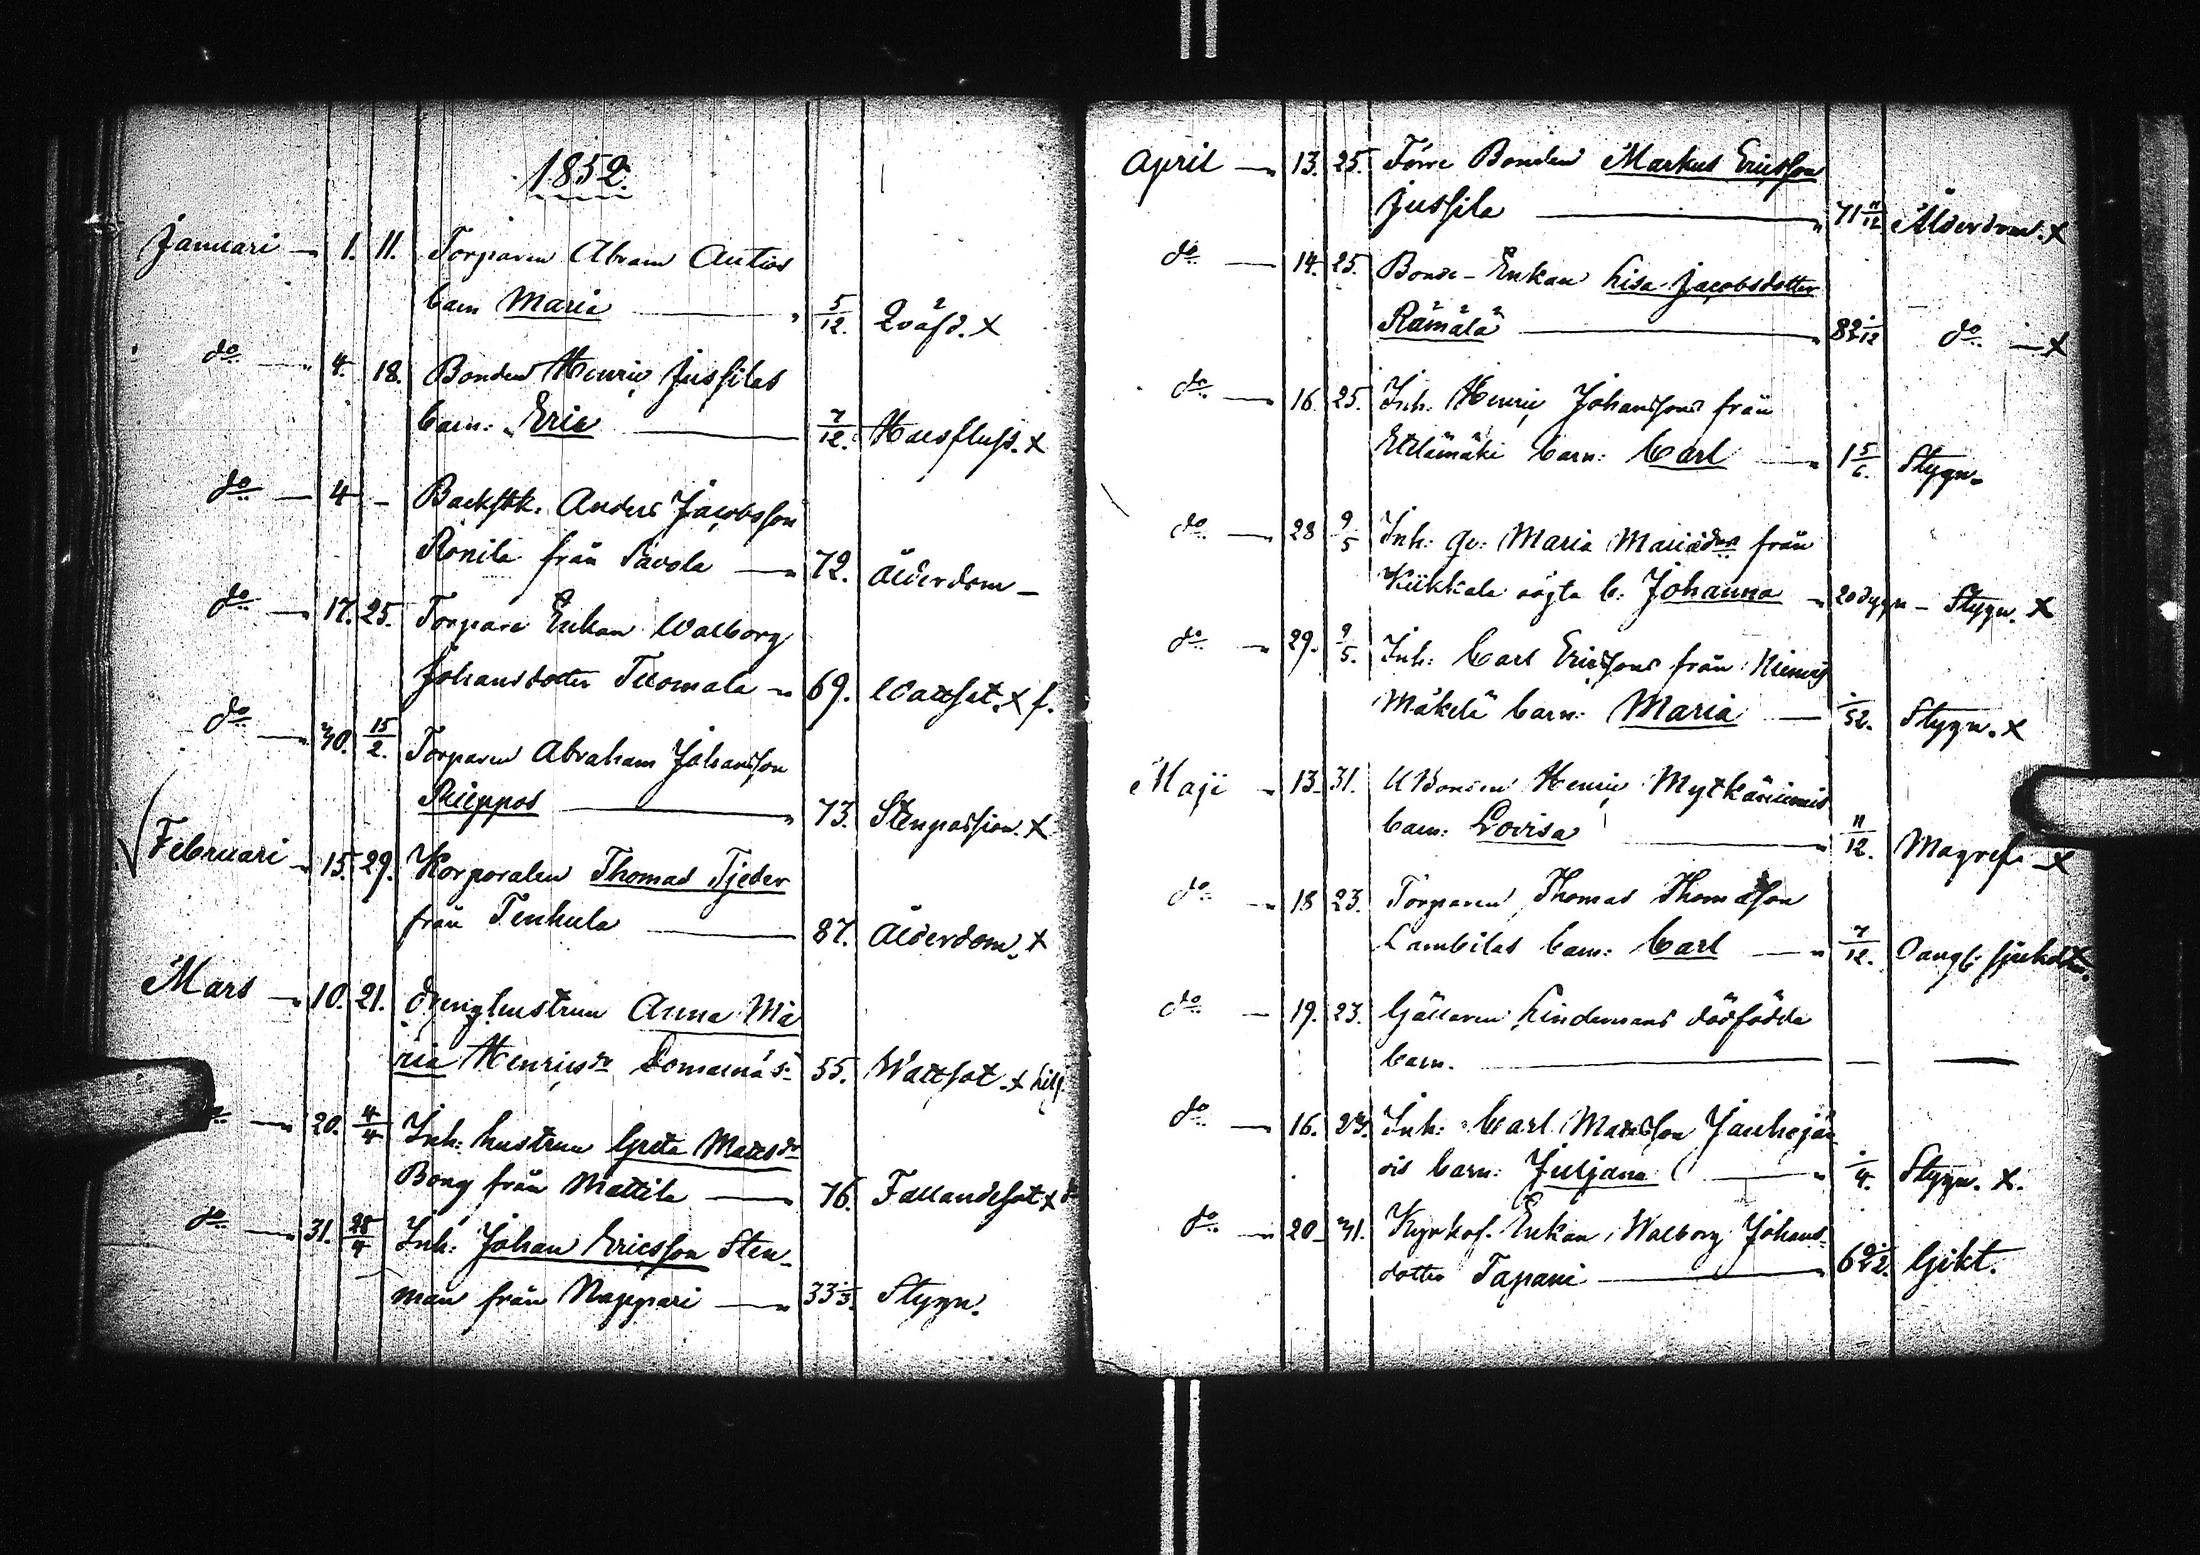 1852.
Januari — 1. 11. Torparen Abram Antias
barn Maria — 5/12. Qväfd. x
do — 4. 18. Bonden Henric Jussilas
barn: Eric — 7/12. Halsfluss. x
do — 4 - Backstk. Anders Jacobsson
Ronila från Savola — 72. Ålderdom —
do — 17. 25. Torpare Enkan Walborg
Johansdotter Tuomala — 69. Wattsot. x f.
do — 30. 15/2. Torparen Abraham Johansson
Piuppos — 73. Stenpassion. x
Februari — 15. 29. Korporalen Thomas Tjeder
från Tenhula — 87. Ålderdom. x
Mars — 10. 21. Drenghustrun Anna Ma
ria Henricsdr — 55. Wattsot. x
— 20. 4/4 Inh: hustrun Greta Matsdr
Borg från Mattila — 76. Fallandesot x
do — 31. 25/4 Inh: Johan Ericsson Sten-
man från Nappari — 33 1/3. Stygn.
April — 13. 25. Förre Bonden Markus Ericsson
Jussila — 71 11/12 Ålderdom. x
do — 14. 25. Bonde-Enkan Lisa Jacobsdotter
Rämälä — 82 1/12 do — x
do — 16. 25. Inh. Henric Johanssons från
Etelämäki barn: Carl — 1 5/6. Stygn.
do — 28 9/5 Inh: qv: Maria Mariædr från
Kiikkala oägta b: Johanna — 20 dygn — Stygn. x
do — 29. 9/5. Inh: Carl Ericssons från Niemis
Mäkelä barn: Maria — 1/52. Stygn. x
Maji — 13. 31. UBonden Henric Mytkäniemis
barn: Lovisa — 11/12. Magref. x
do — 18 23. Torparen Thomas Thomasson
Lambilas barn: Carl — 7/12. sjukdom.
do — 19. 23. Gjällaren Lindemans dödfödda
barn. — — —
do — 16. 23. Inh: Carl Matsson Jauhojär-
vis barn: Juljana — 1/4. Stygn. x.
do — 20. 31. Kyrkof. Enkan Walborg Johans-
dotter Tapani — Gikt.